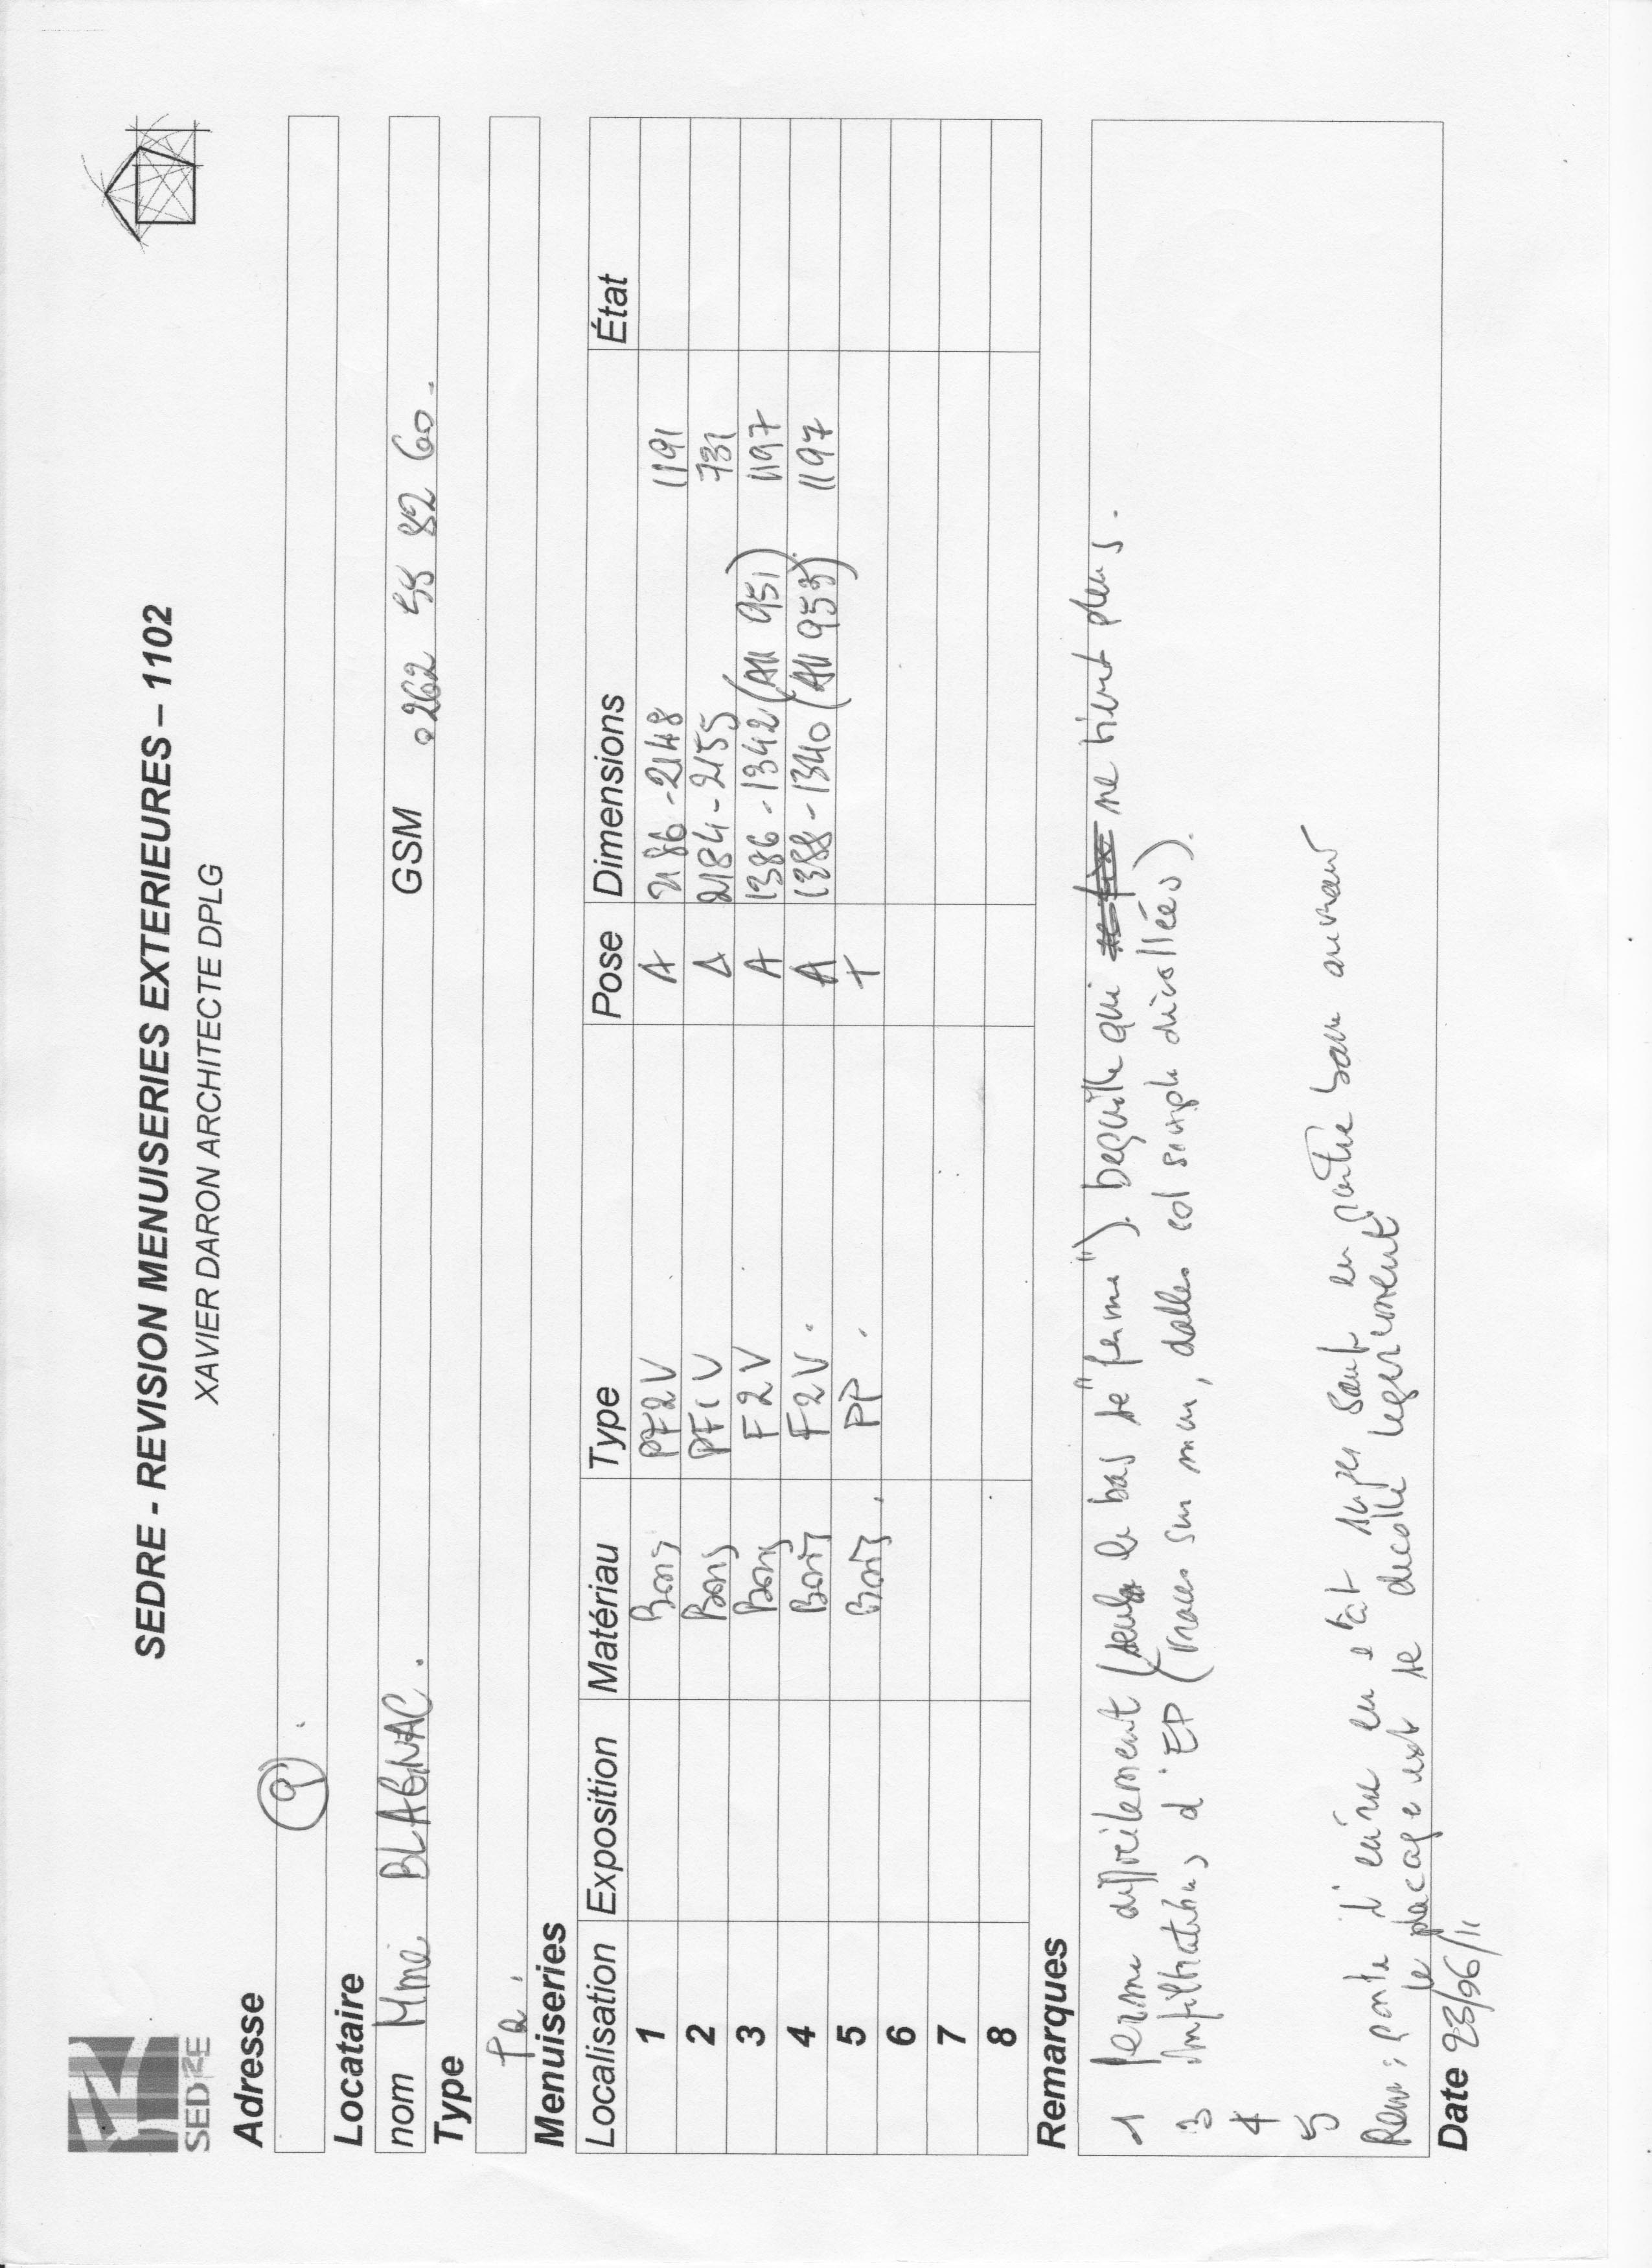 SEDRE
SEDRE - REVISION MENUISERIES EXTERIEURES – 1102
XAVIER DARON ARCHITECTE DPLG
Adresse
9
Locataire
nom Mme BLAGNAC. GSM 0262 58 82 60.
Type
Menuiseries
Localisation Exposition Matériau Type Pose Dimensions État
1 Bois PF2V A 2186-2148 1191
2 Bois PF1V A 2184-2155 731
3 Bois F2V A 1386-1342 (All 951) 1197
4 Bois F2V. A 1388-1340 (All 953) 1197
5 Bois. PP. T
6
7
8
Remarques
1 ferme difficilement (seul le bas se "ferme"). bequille qui ne tient plus.
3 infiltrations d'EP (traces sur mur, dalles sol souple décollées).
4
5
Rem: porte d'entrée en état sauf en partie basse
le placage ext se décolle legerement
Date 23/06/11